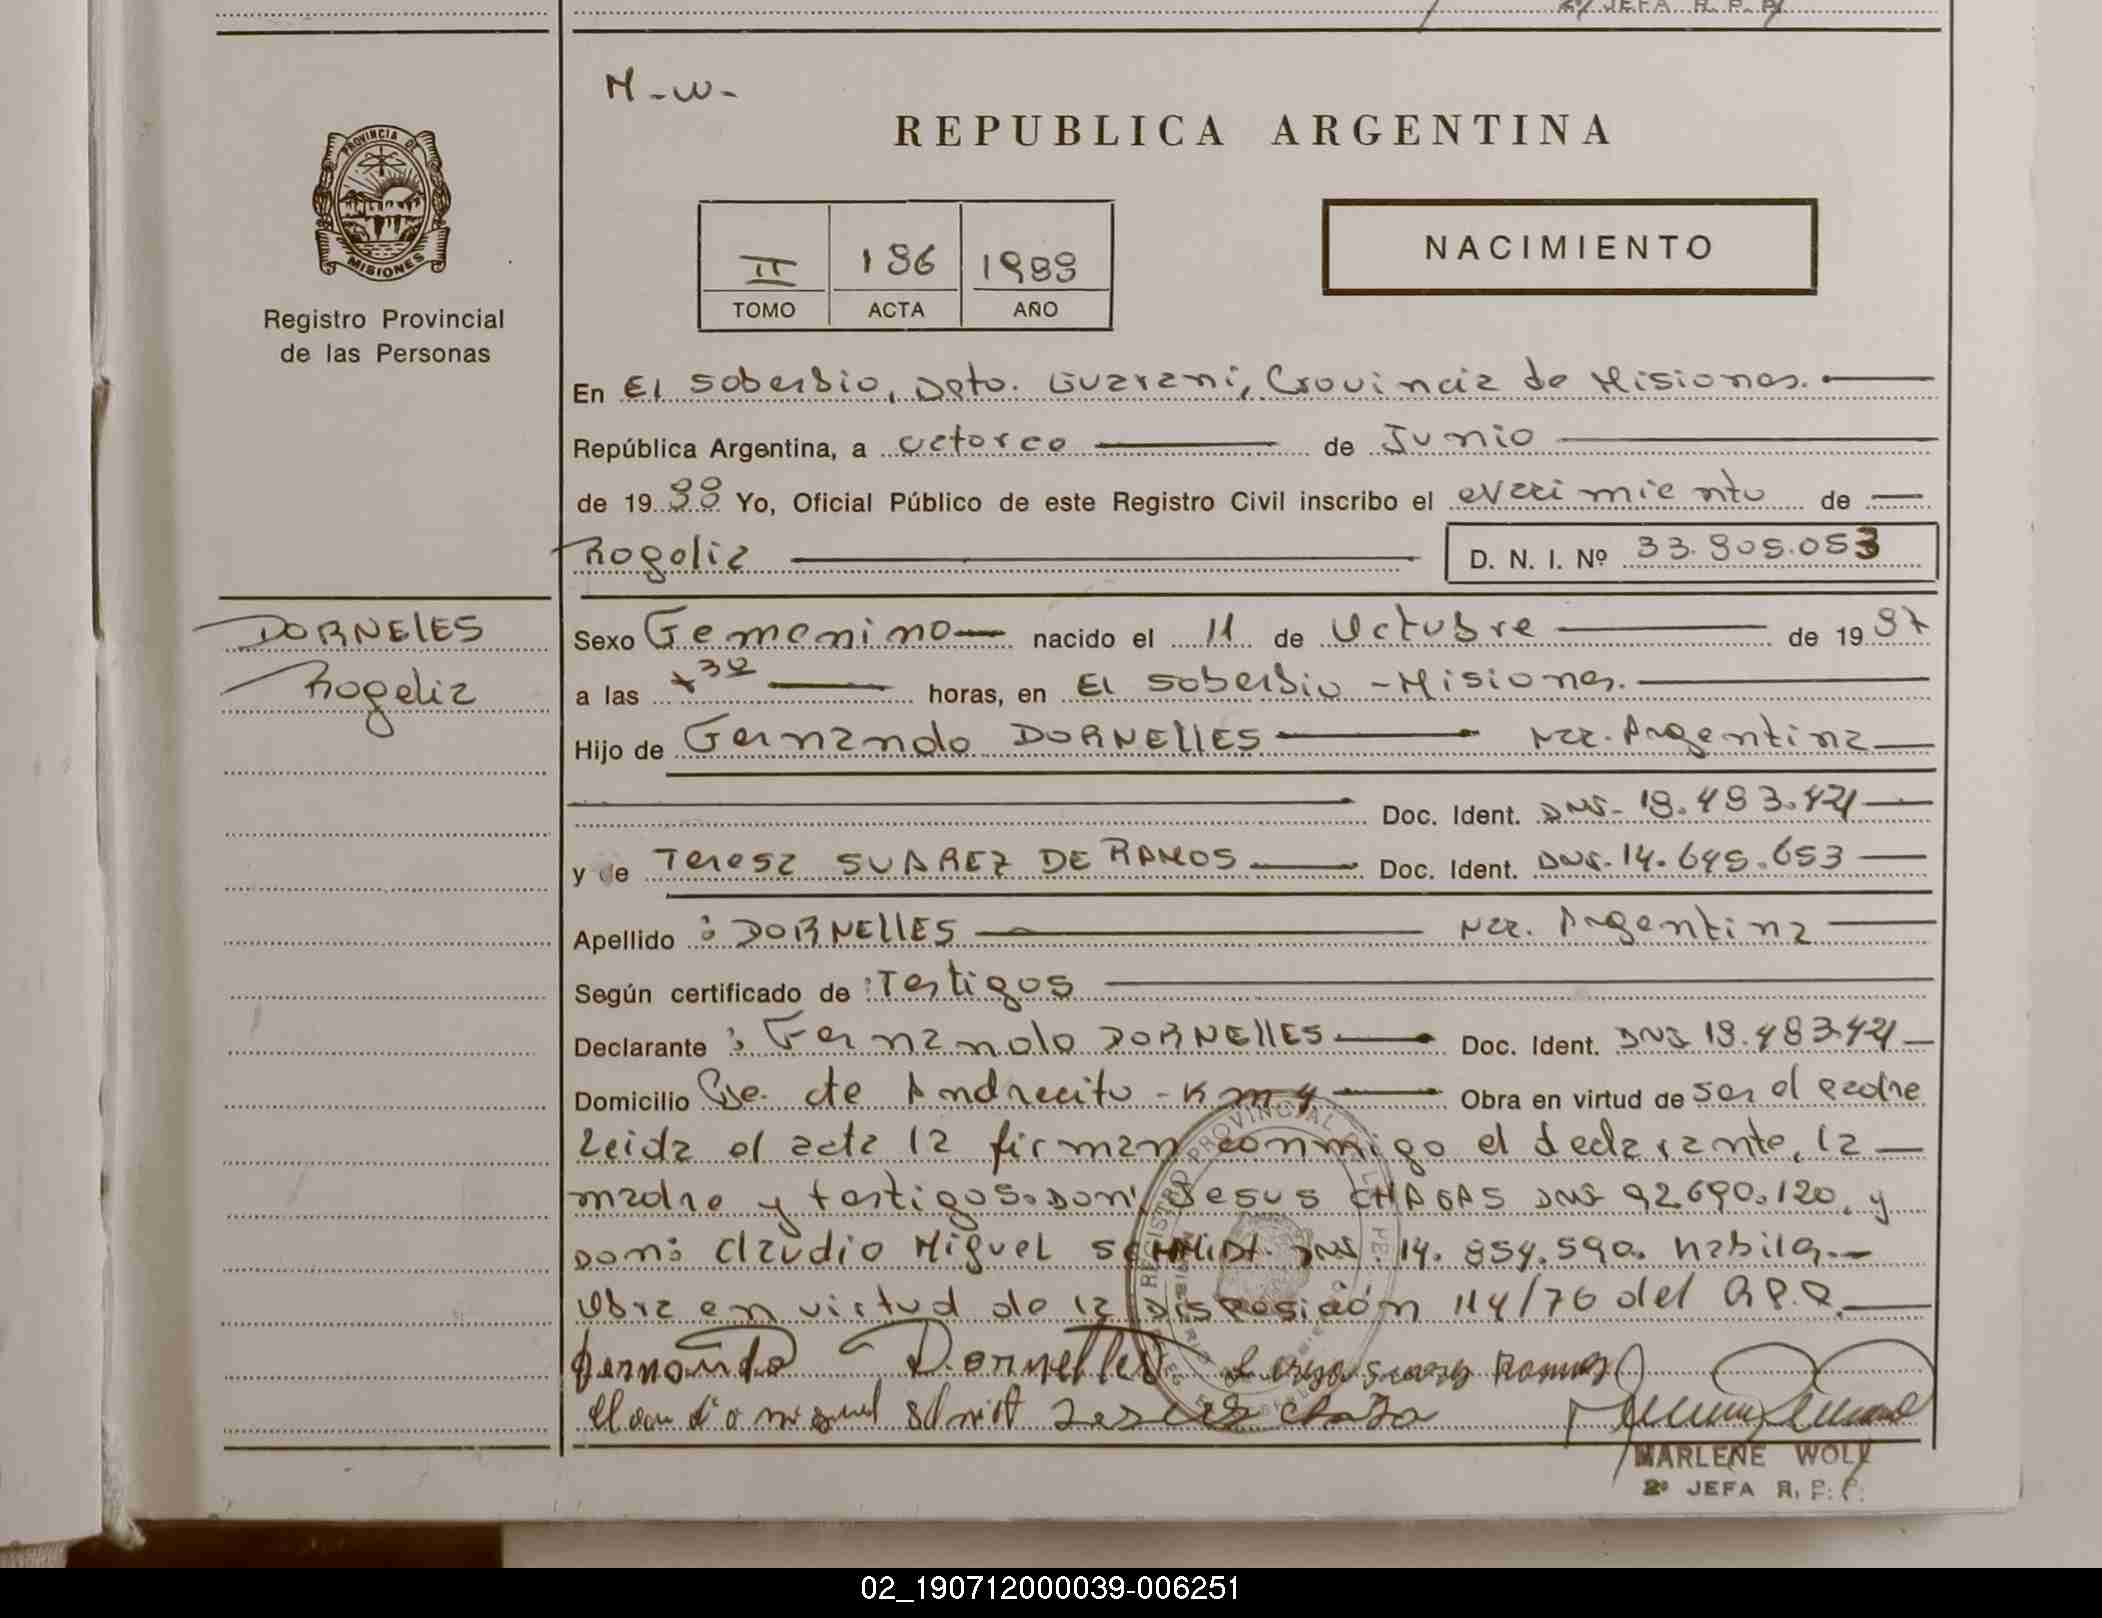 2º JEFA R. P. P.
M-W-
REPUBLICA ARGENTINA
PROVINCIA DE
MISIONES
Registro Provincial
de las Personas
II 196 1988
TOMO ACTA AÑO
NACIMIENTO
En El Soberbio, Dpto. Guarani, Provincia de Misiones.
República Argentina, a catorce de Junio
de 19 88 Yo, Oficial Público de este Registro Civil inscribo el nacimiento de
Rogelia D. N. I. Nº 33.905.053
DORNELES
Rogelia
Sexo Femenino nacido el 11 de Octubre de 19 87
a las horas, en El Soberbio - Misiones.
Hijo de Fernando DORNELLES Nac. Argentina
Doc. Ident. DNI- 18.483.421
y de Teresa SUAREZ DE RAMOS Doc. Ident. DNI. 14.645.653
Apellido : DORNELLES Nac. Argentina
Según certificado de : Testigos
Declarante : Fernando DORNELLES Doc. Ident. DNI 18.483.421
Domicilio Cde. de Andrecito - Km 4 Obra en virtud de ser el padre
Leida el acta la firman conmigo el declarante, la
madre y testigos. Don: Jesus CHAGAS DNI 92.690.120, y
Don: Claudio Miguel SCHMIDT. DNI. 14.854.590. habila.
Obra en virtud de la Disposición 114/76 del R.P.P.
Fernando Dornelles Suarez Ramos
Miguel
MARLENE WOLF
2º JEFA R. P. P.
02_190712000039-006251